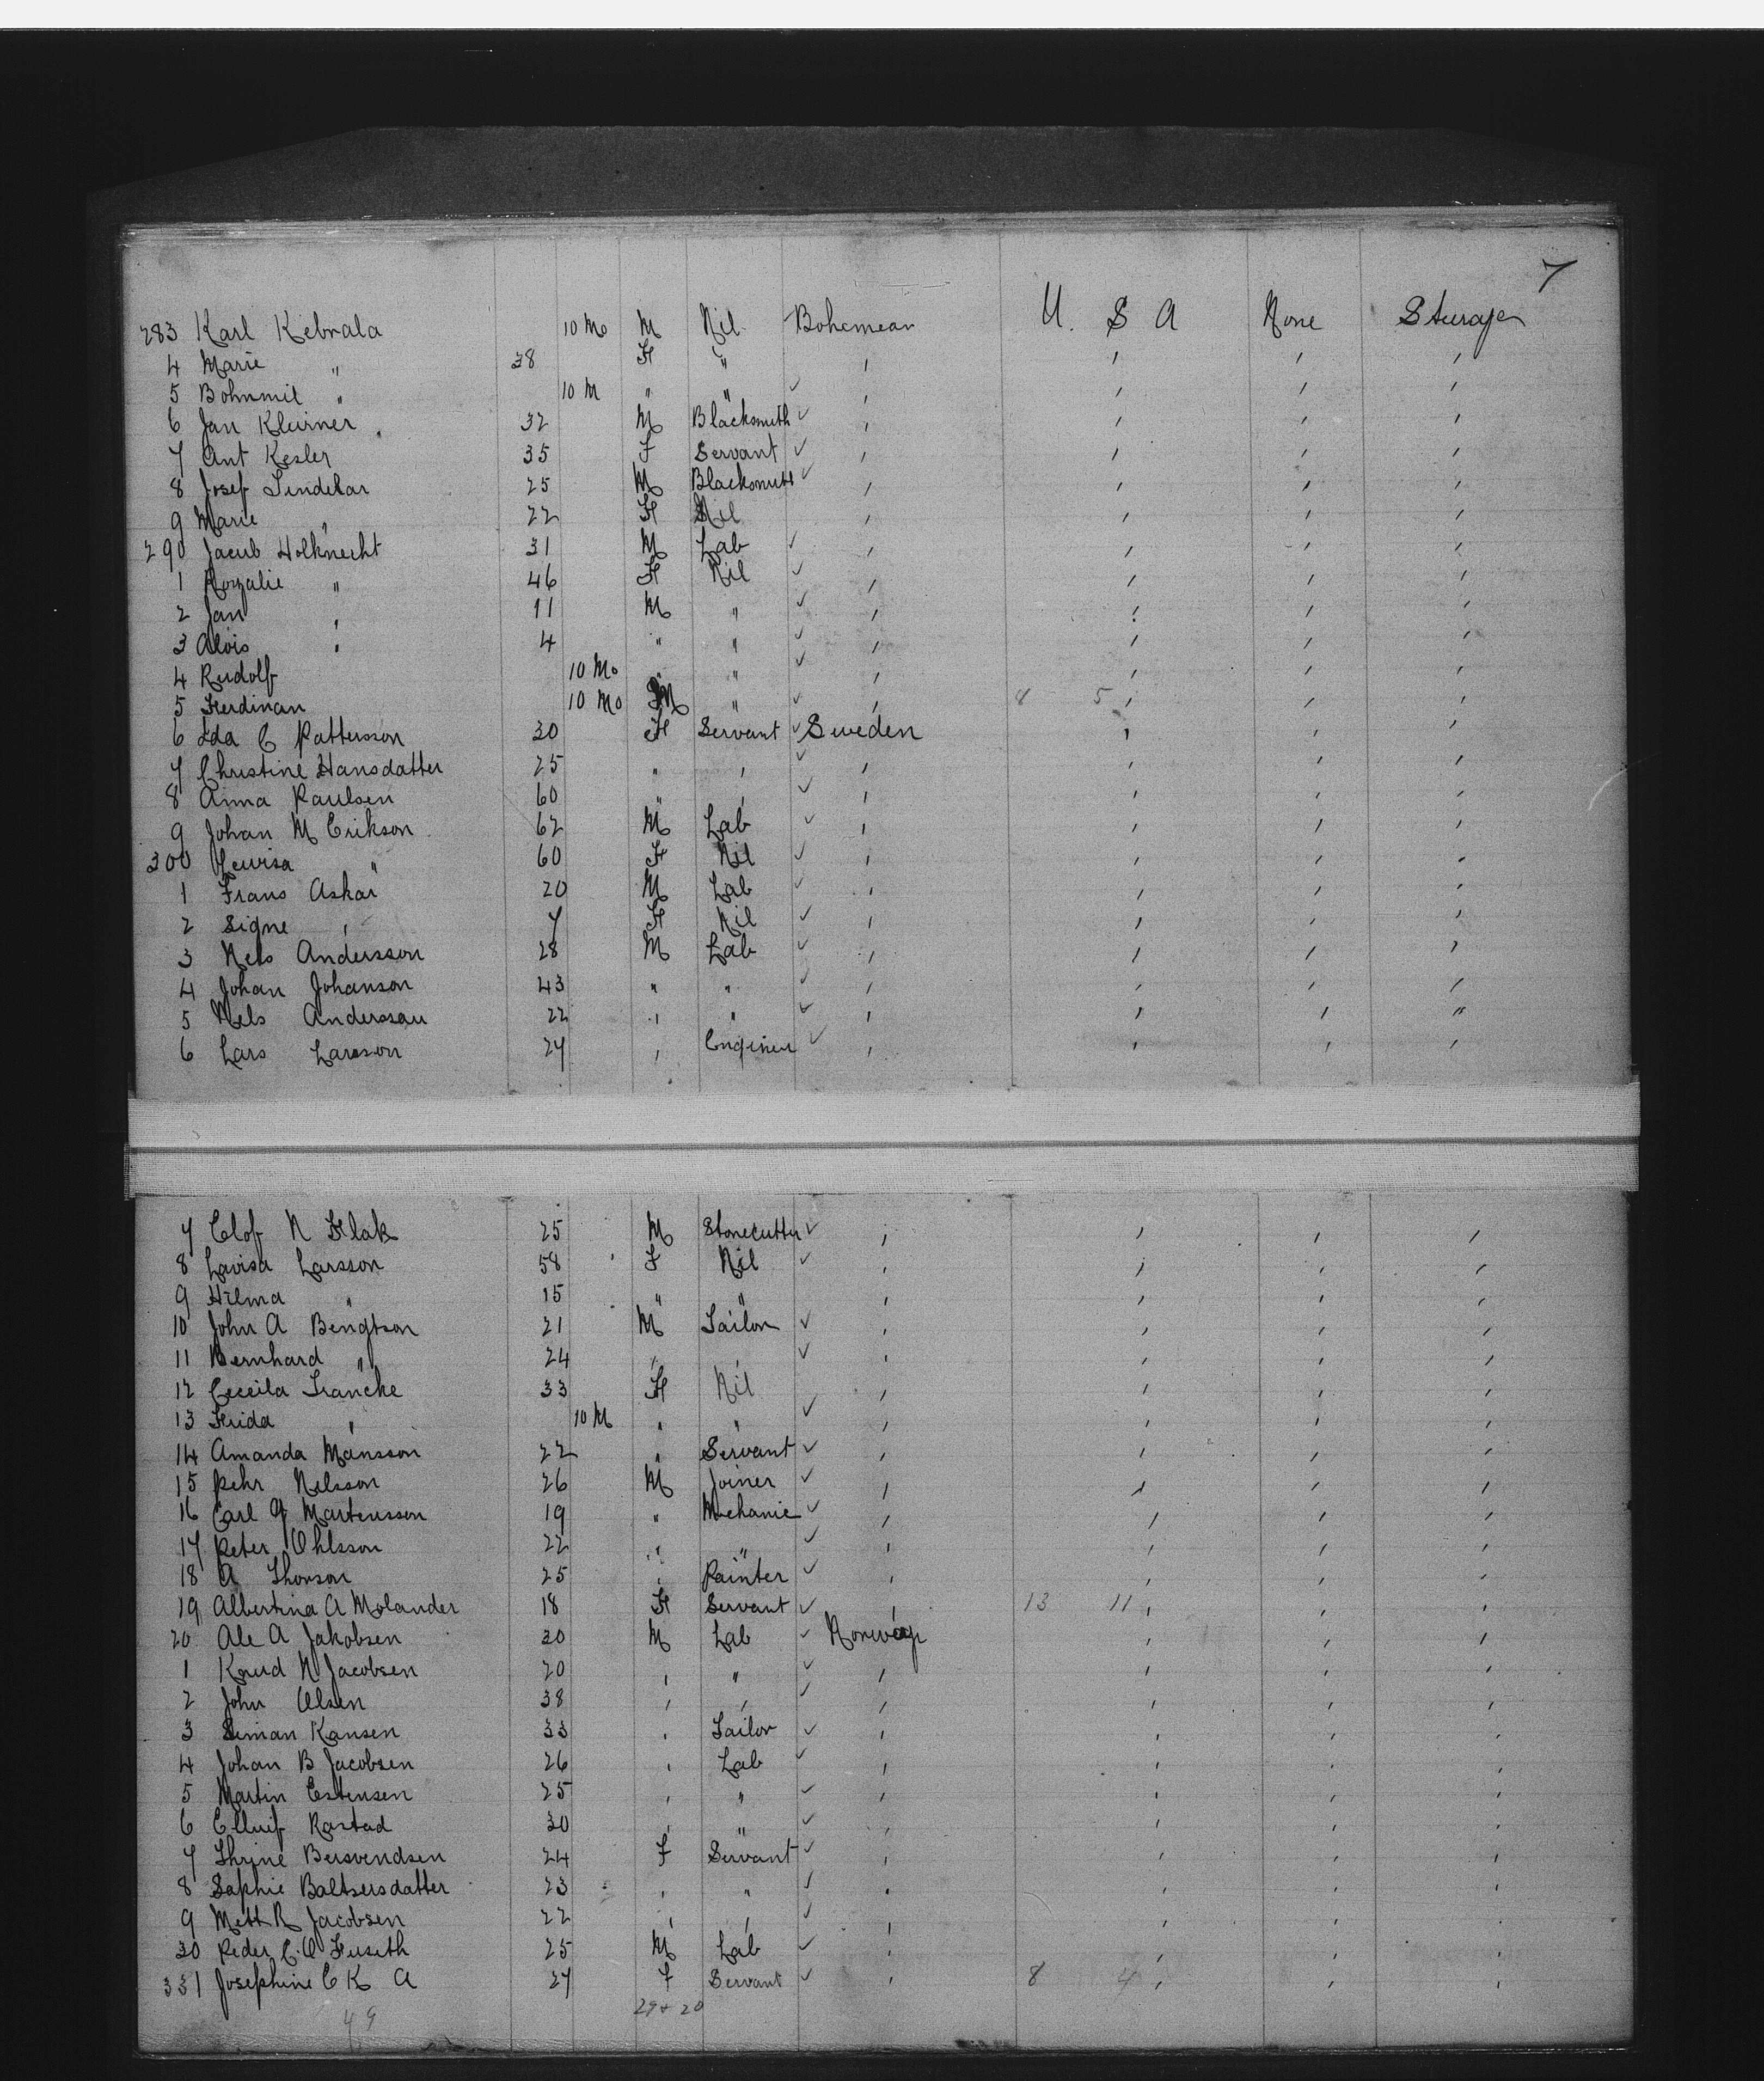 7
283 Karl Kebrala 10 Mo M Nil Bohemean U. S A None Sturage
4 Marie " 38 F " ' ' ' '
5 Bohumil " 10 M " " ✓ ' ' ' '
6 Jan Kleirner 32 M Blacksmith ✓ ' ' ' '
7 Ant Kesler 35 F Servant ✓ ' ' ' '
8 Josef Sindelar 25 M Blacksmith ✓ ' ' ' '
9 Marie " 22 F Nil ' ' ' '
290 Jacub Holknecht 31 M Lab ✓ ' ' ' '
1 Rozalie " 46 F Nil ✓ ' ' ' '
2 Jan ' 11 M " ✓ ' ' ' '
3 Alois ' 4 " " ✓ ' ' ' '
4 Rudolf 10 Mo " " ✓ ' ' ' '
5 Ferdinan 10 Mo M " ✓ ' 8 5 ' ' '
6 Ida C Pattersson 30 F Servant ✓ Sweden ' ' '
7 Christine Hansdatter 25 " ' ✓ ' ' ' '
8 Anna Paulsen 60 " ' ✓ ' ' ' '
9 Johan M Erikson 62 M Lab ✓ ' ' ' '
300 Lewisa " 60 F Nil ✓ ' ' ' '
1 Frans Askar 20 M Lab ✓ ' ' ' '
2 Signe ' 7 F Nil ✓ ' ' ' '
3 Nels Andersson 28 M Lab ✓ ' ' ' '
4 Johan Johanson 43 " " ✓ ' ' ' '
5 Nels Anderssau 22 " " ✓ ' ' ' "
6 Lars Larsson 27 ' Enginer ✓ ' ' ' '
7 Elof N Flak 25 M Stonecutter ✓ ' ' ' '
8 Lavisa Larsson 58 F Nil ✓ ' ' ' '
9 Hilma " 15 " " ' ' ' '
10 John A Bengtson 21 M Sailor ✓ ' ' ' '
11 Bernhard " 24 " ' ✓ ' ' ' '
12 Ceceila Francke 33 F Nil ' ' ' '
13 Frida " 10 M " " ✓ ' ' ' '
14 Amanda Mansson 22 " Servant ✓ ' ' ' '
15 Pehr Nelsson 26 M Joiner ✓ ' ' ' '
16 Carl G Martensson 19 " Mechanic ✓ ' ' ' '
17 Peter Ohlsson 22 " " ✓ ' ' ' '
18 A Thorson 25 ' Painter ✓ ' ' ' '
19 Albertina A Molander 18 F Servant ✓ ' 13 11 ' ' '
20 Ale A Jakobsen 30 M Lab ✓ Norway ' ' '
1 Knud N Jacobsen 20 ' " ✓ ' ' ' '
2 John Olsen 38 ' ' ✓ ' ' ' '
3 Siman Kansen 33 ' Sailor ✓ ' ' ' '
4 Johan B Jacobsen 26 ' Lab ✓ ' ' ' '
5 Martin Estensen 25 ' " ✓ ' ' ' '
6 Elluif Rastad 30 ' " ✓ ' ' ' '
7 Thrine Bersvendsen 24 F Servant ✓ ' ' ' '
8 Saphie Baltsersdatter 23 ' " ✓ ' ' ' '
9 Mett R Jacobsen 22 ' ' ✓ ' ' ' '
30 Peder C. O Fuseth 25 M Lab ✓ ' ' ' '
331 Josephine C K A 27 F Servant ✓ ' 8 4 ' ' '
49 29 + 20